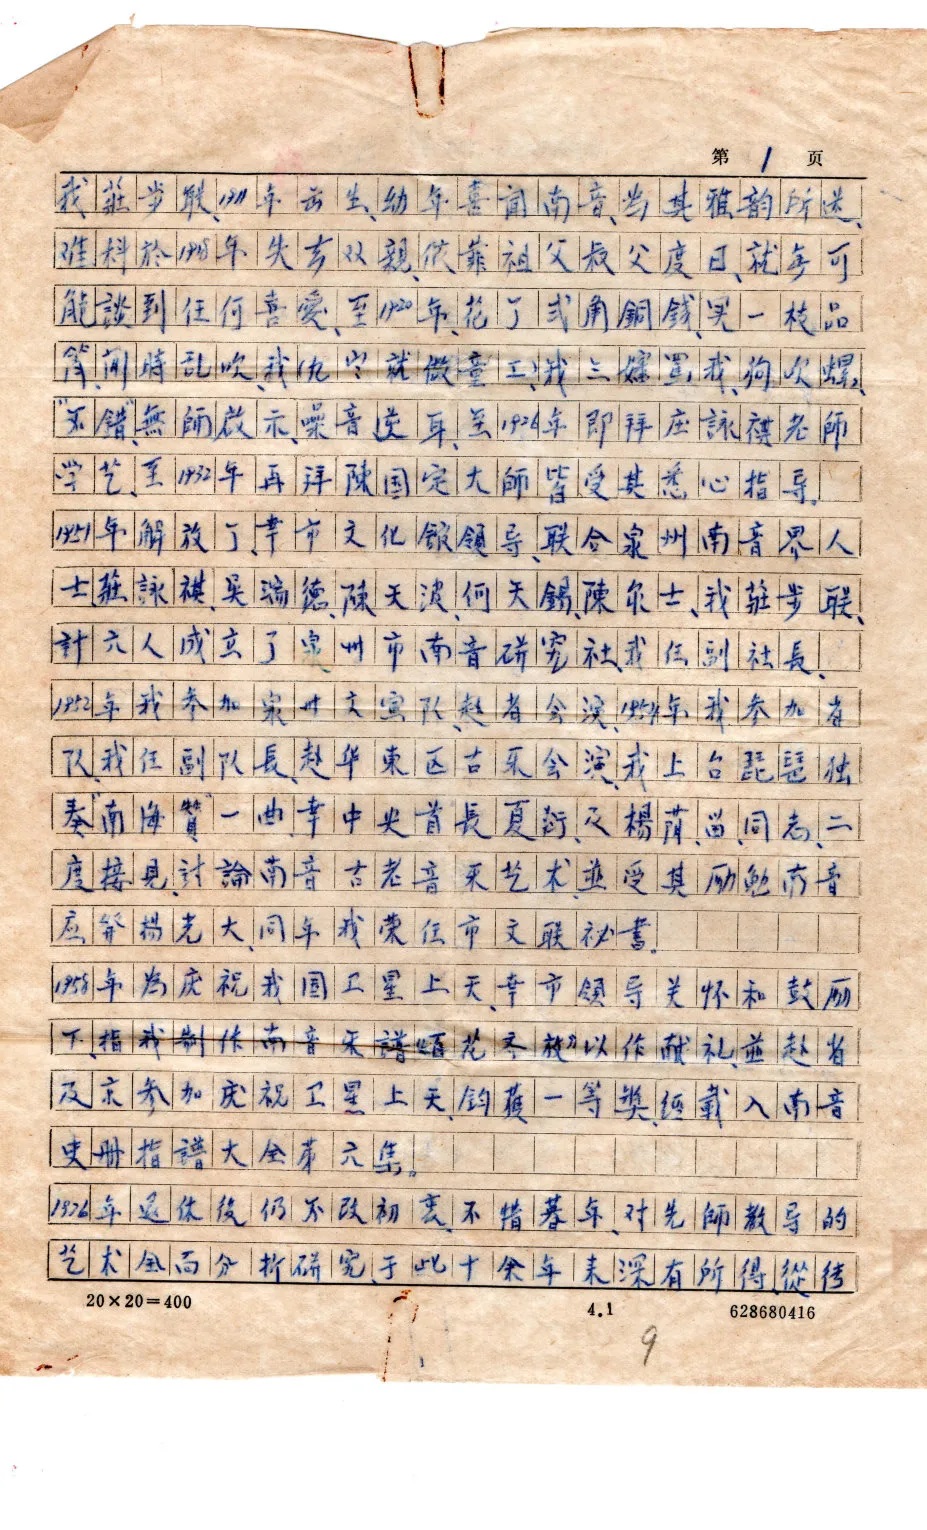 第 1 页
我莊步联、1911年出生、幼年喜闻南音、为其雅韵所迷、
难料於1918年失去双親、依靠祖父叔父度日、就無可
能談到任何喜愛、至1920年、花了弍角銅錢、买一枝品
筲、闲時乱吹、我(九岁就做童工)我三嬸罵我、狗吹螺、
"不错"、無師啟示、噪音逆耳、至1926年即拜庄詠祺老师
学艺、至1932年再拜陳国定大師皆受其悉心指导。
1951年解放了、幸市文化舘領导、联合泉州南音界人
士莊詠祺、吴瑞德、陳天波、何天錫、陳尔士、我莊步联、
計六人成立了泉州市南音研究社、我任副社長、
1952年我参加泉州文宣队、赴省会演、1954年我参加省
队、我任副队長、赴华東区古乐会演、我上台琵琶独
奏"南海贊"一曲、幸中央首長夏衍、及楊荫浏同志、二
度接見、討論南音古老音乐艺术、並受其励勉南音
应發揚光大、同年我荣任市文联祕書。
1958年為庆祝我国卫星上天、幸市領导关怀和鼓励
下、指我制作南音乐譜"百花齐放"以作献礼、並赴省
及京参加庆祝卫星上天、鈞獲一等奬、經載入南音
史册指譜大全第六集。
1976年退休後仍不改初衷、不惜暮年、对先師教导的
艺术全面分析研究、于此十余年来、深有所得、從传
20×20=400 4.1 628680416
9